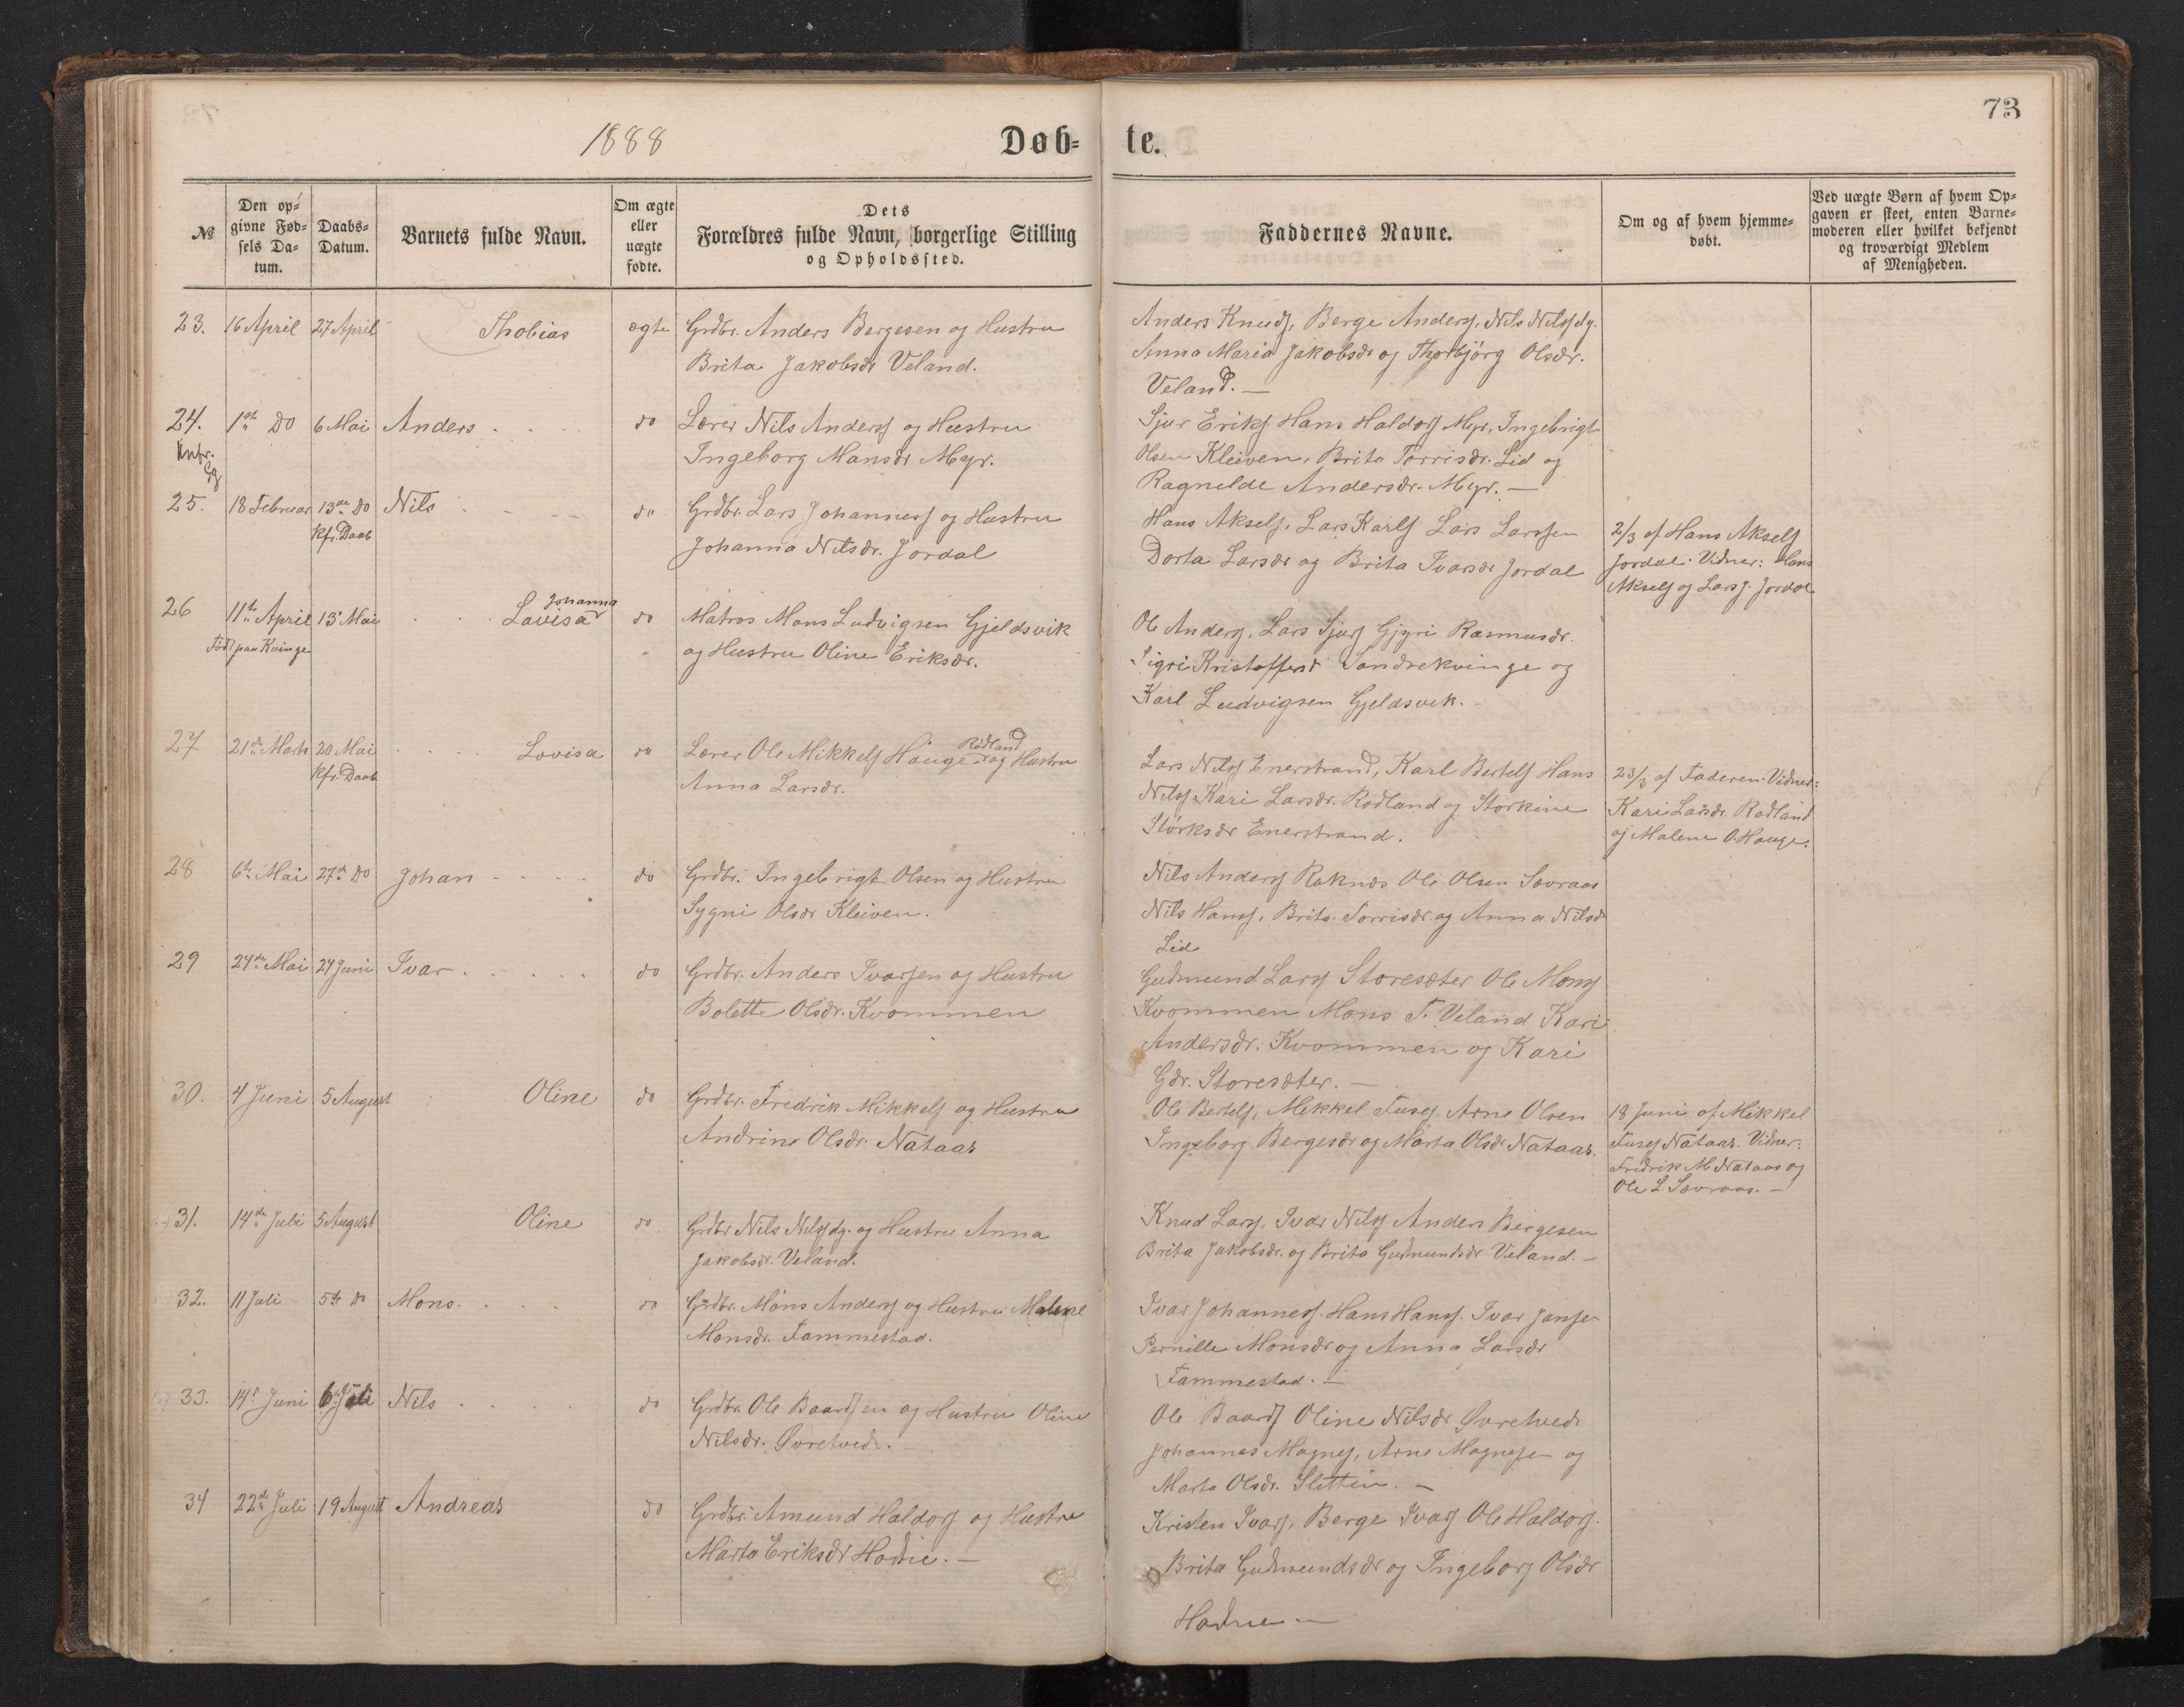 73
1888
Døb- te.
№
Den op-
givne Fød-
sels Da-
tum.
Daabs-
Datum.
Barnets fulde Navn.
Om ægte
eller
uægte
fødte.
Dets
Forældres fulde Navn, borgerlige Stilling
og Opholdssted.
Faddernes Navne.
Om og af hvem hjemme-
døbt.
Ved uægte Børn af hvem Op-
gaven er skeet, enten Barne-
moderen eller hvilket bekjendt
og troværdigt Medlem
af Menigheden.
23. 16 April 27 April Thobias ægte Grdbr. Anders Bergesen og Hustru
Brita Jakobsdr Veland.
Anders Knuds, Berge Anders, Nils Nilss dy.
Anna Maria Jakobsdr og Thorbjörg Olsdr.
Veland. —
24. 1ste Do 6 Mai Anders do Lærer Nils Anderss og Hustru
Ingeborg Mansdr Myr.
Sjur Eriks. Hans Haldors Myr. Ingebrigt
Olsen Kleiven, Brita Torrisdr. Lid og
Ragnilde Andersdr. Myr. —
25. 18 Februar 13de Do Nils do Grdbr. Lars Johanness og Hustru
Kfr. Daab
Johanna Nilsdr. Jordal
Hans Aksels, Lars Karls Lars Larssen
Dorta Larsdr og Brita Ivarsdr Jordal
2/3 af Hans Aksels
Jordal. Vidner: Hans
Aksels og Lars J. Jordal
26 11te April 13 Mai Johanna
Lovisa do Matros Mons Ludvigsen Gjeldsvik
Født paa Kvinge
og Hustru Oline Eriksdr.
Ole Anders, Lars Sjurs Gjyri Rasmusdr.
Sigri Kristoffersd Søndrekvinge og
Karl Ludvigsen Gjeldsvik. -
27 21de Marts 20 Mai Lovisa do Lærer Ole Mikkels Hauge Rødland og Hustru
Kfr. Daab
Anna Larsdr.
Lars Nilss Enerstrand, Karl Bertels Hans
Nilss, Kari Larsdr. Rødland og Storkine
Størksdr Enerstrand.
23/3 af Faderen. Vidner:
Kari Larsdr. Rødland
og Malene O. Hauge.
28 6te Mai 27de Do Johan do Grdbr. Ingebrigt Olsen og Hustru
Sygni Olsdr Kleiven.
Nils Anders Raknes Ole Olsen Sævraas
Nils Hanss, Brita Torrisdr. og Anna Nilsdr
Lid
29 24de Mai 24 Juni Ivar do Grdbr. Anders Ivarssen og Hustru
Bolette Olsdr. Kvammen
Gudmund Larss Storesæter Ole Monss
Kvammen Mons T. Veland Kari
Andersdr. Kvammen og Kari
Gdr. Storesæter. —
30. 4 Juni 5 August Oline do Grdbr. Fredrik Mikkels og Hustru
Andrine Olsdr. Nataas
Ole Bertels, Mikkel Tuses Arne Olsen
Ingeborg Bergesdr og Marta Olsdr Nataas.
18 Juni af Mikkel
Tuses Nataas. Vidner:
Fredrik M Nataas og
Ole L. Sævraas. —
31. 14de Juli 5 August Oline do Grdbr Nils Nilss dy. og Hustru Anna
Jakobsdr. Veland.
Knud Larss, Ivar Nilss Anders Bergesen
Brita Jakobsdr. og Brita Gudmundsdr Veland. —
32. 11 Juli 5te Do Mons. do Grdbr. Mons Anders og Hustru Malene
Monsdr. Tammestad.
Ivar Johanness. Hans Hanss. Ivar Jansen
Pernille Monsdr og Anna Larsdr
Fammestad. —
33. 14de Juni 6te Juli Nils do Grdbr. Ole Baardsen og Hustru Oline
Nilsdr. Øvretvedt.
Ole Baards Oline Nilsdr Øvretvedt
Johannes Magnes, Arne Magnesen og
Marta Olsdr. Sletten. —
34 22de Juli 19 August Andreas do Grdbr. Amund Haldors og Hustru
Marta Eriksdr Hodne. —
Kristen Ivars, Berge Ivars Ole Haldors.
Brita Gudmundsdr og Ingeborg Olsdr
Hodne —